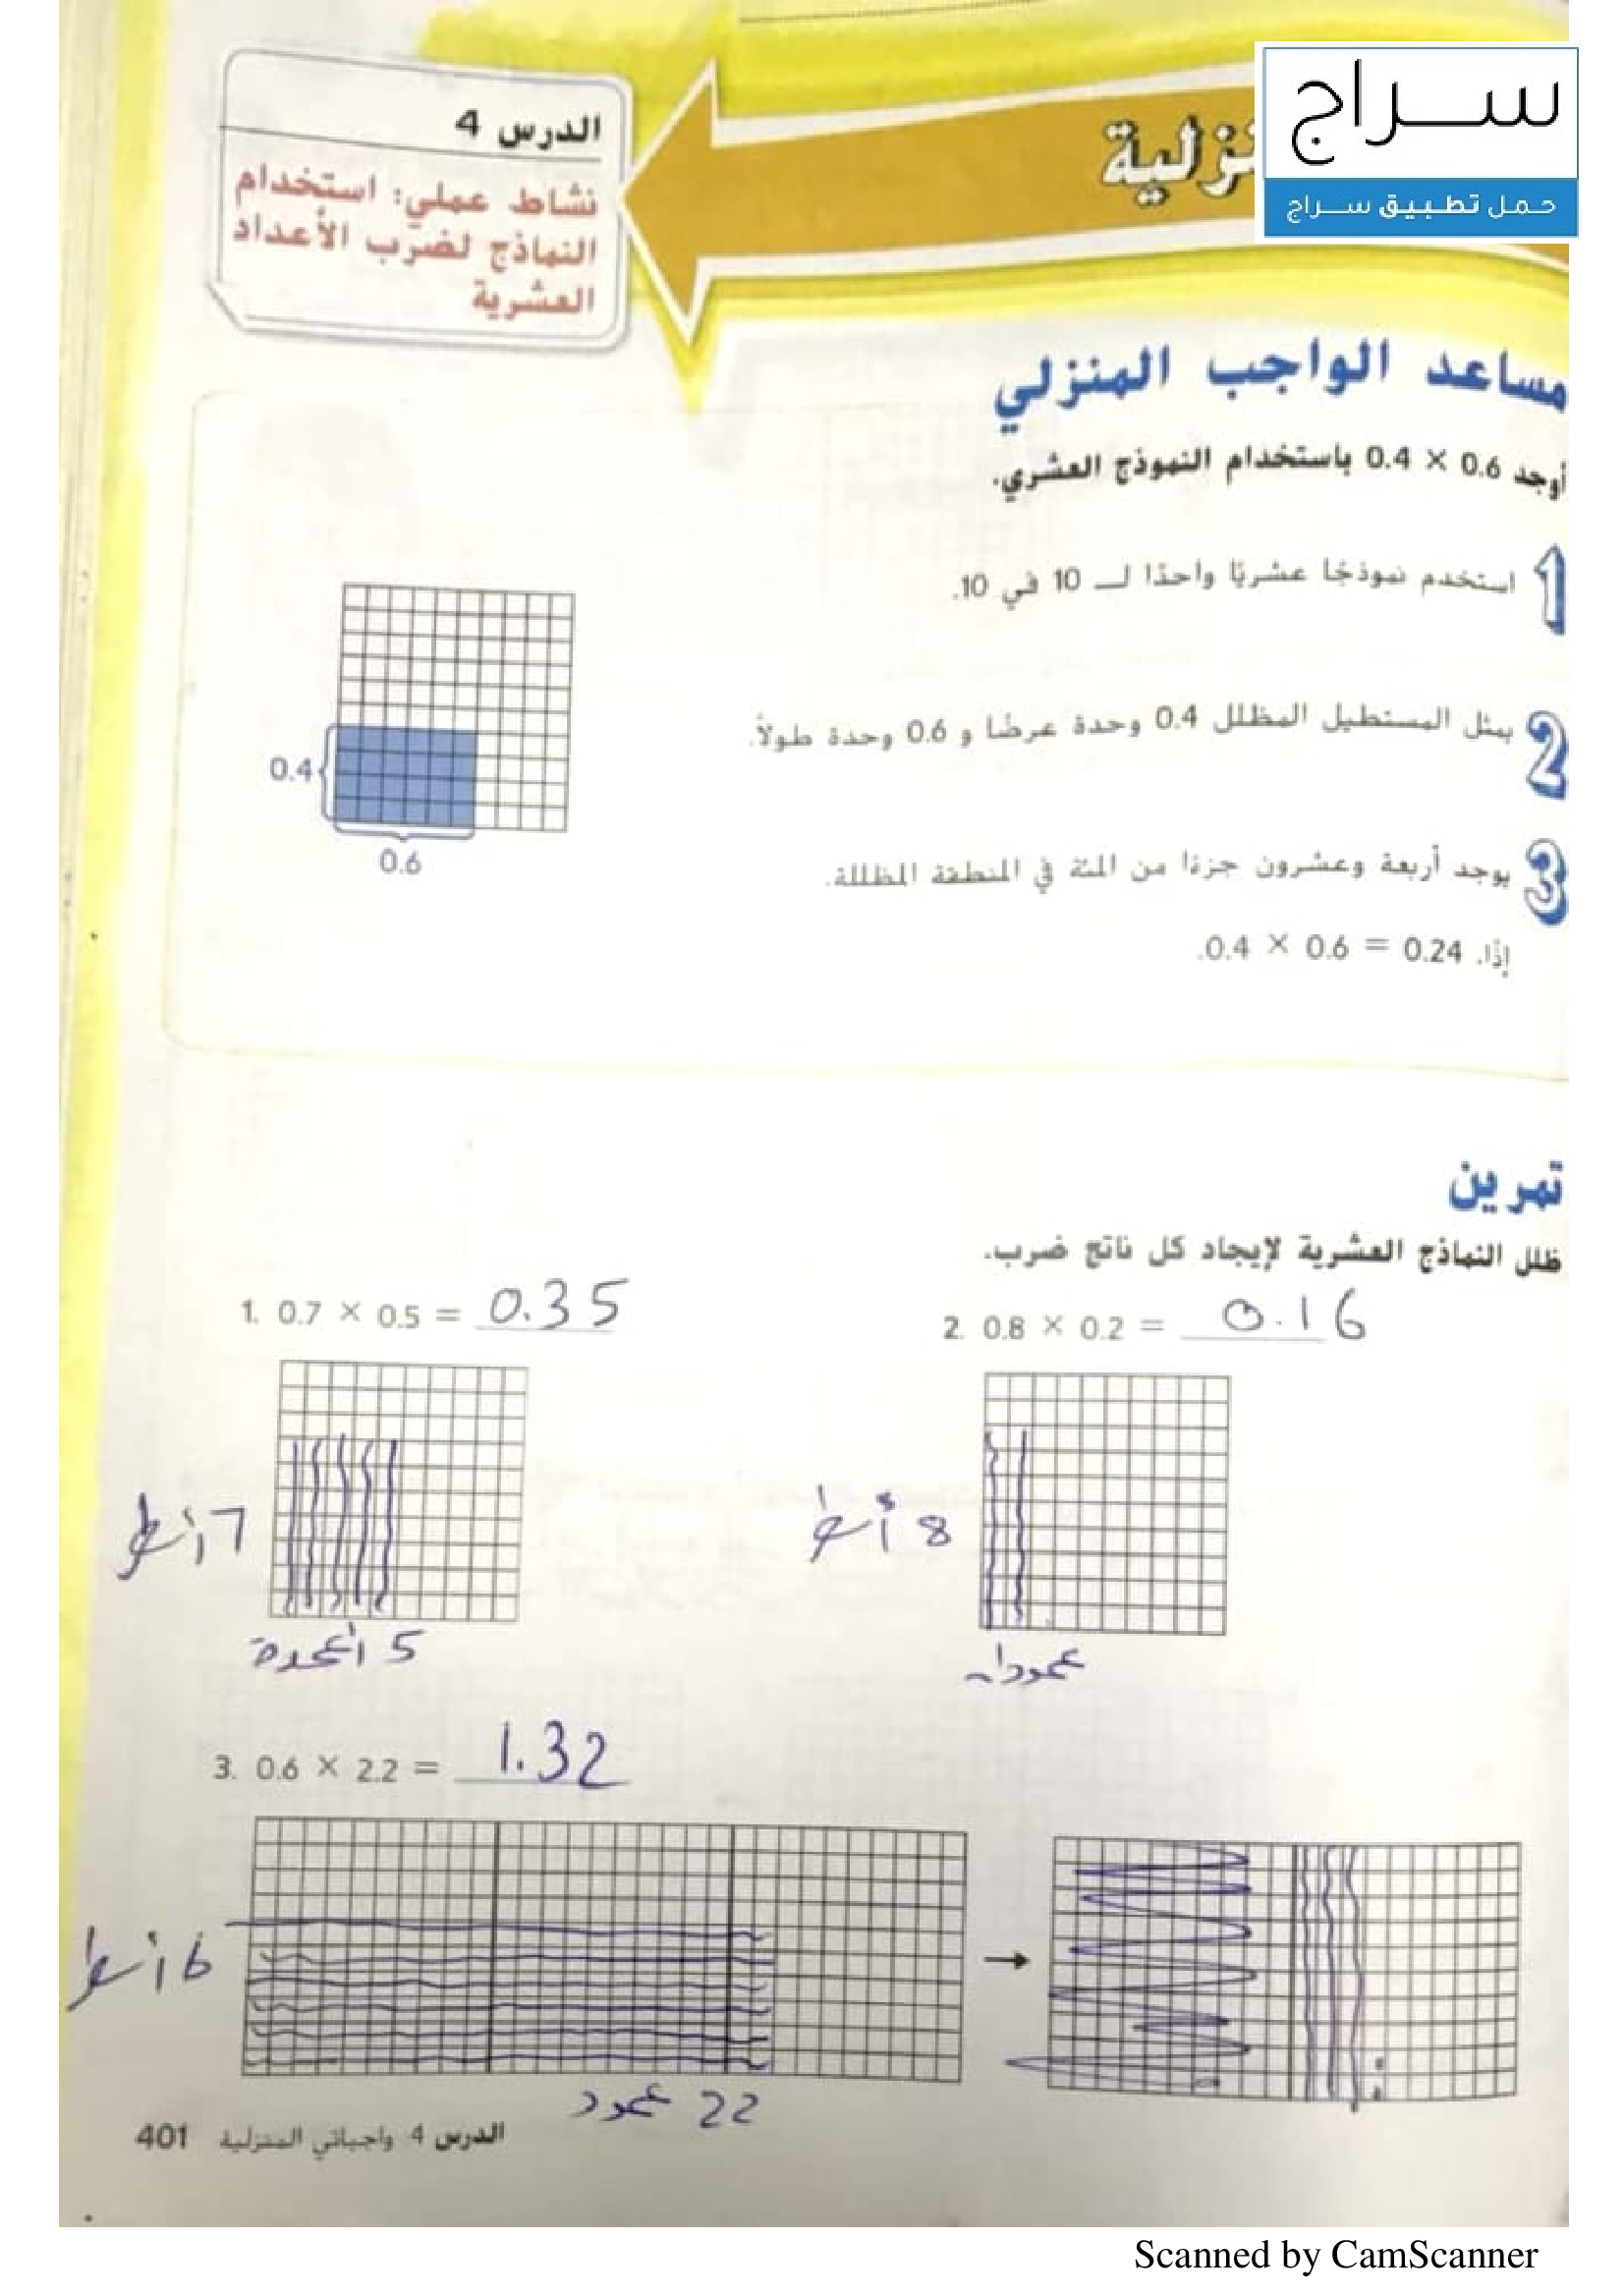 سراج
حمل تطبيق سراج
الدرس 4
نشاط عملي: استخدام
النماذج لضرب الأعداد
العشرية
مساعد الواجب المنزلي
أوجد 0.6 × 0.4 باستخدام النموذج العشري.
1 استخدم نموذجًا عشريًا واحدًا لـ 10 في 10.
2 يمثل المستطيل المظلل 0.4 وحدة عرضًا و 0.6 وحدة طولاً.
0.4
0.6
3 يوجد أربعة وعشرون جزءًا من المئة في المنطقة المظللة.
إذًا، 0.4 × 0.6 = 0.24.
تمرين
ظلل النماذج العشرية لإيجاد كل ناتج ضرب.
1. 0.7 × 0.5 = 0.35
2. 0.8 × 0.2 = 0.16
7
8
5 أعمدة
عمودان
3. 0.6 × 2.2 = 1.32
6
22 عمود
الدرس 4 واجباتي المنزلية 401
Scanned by CamScanner